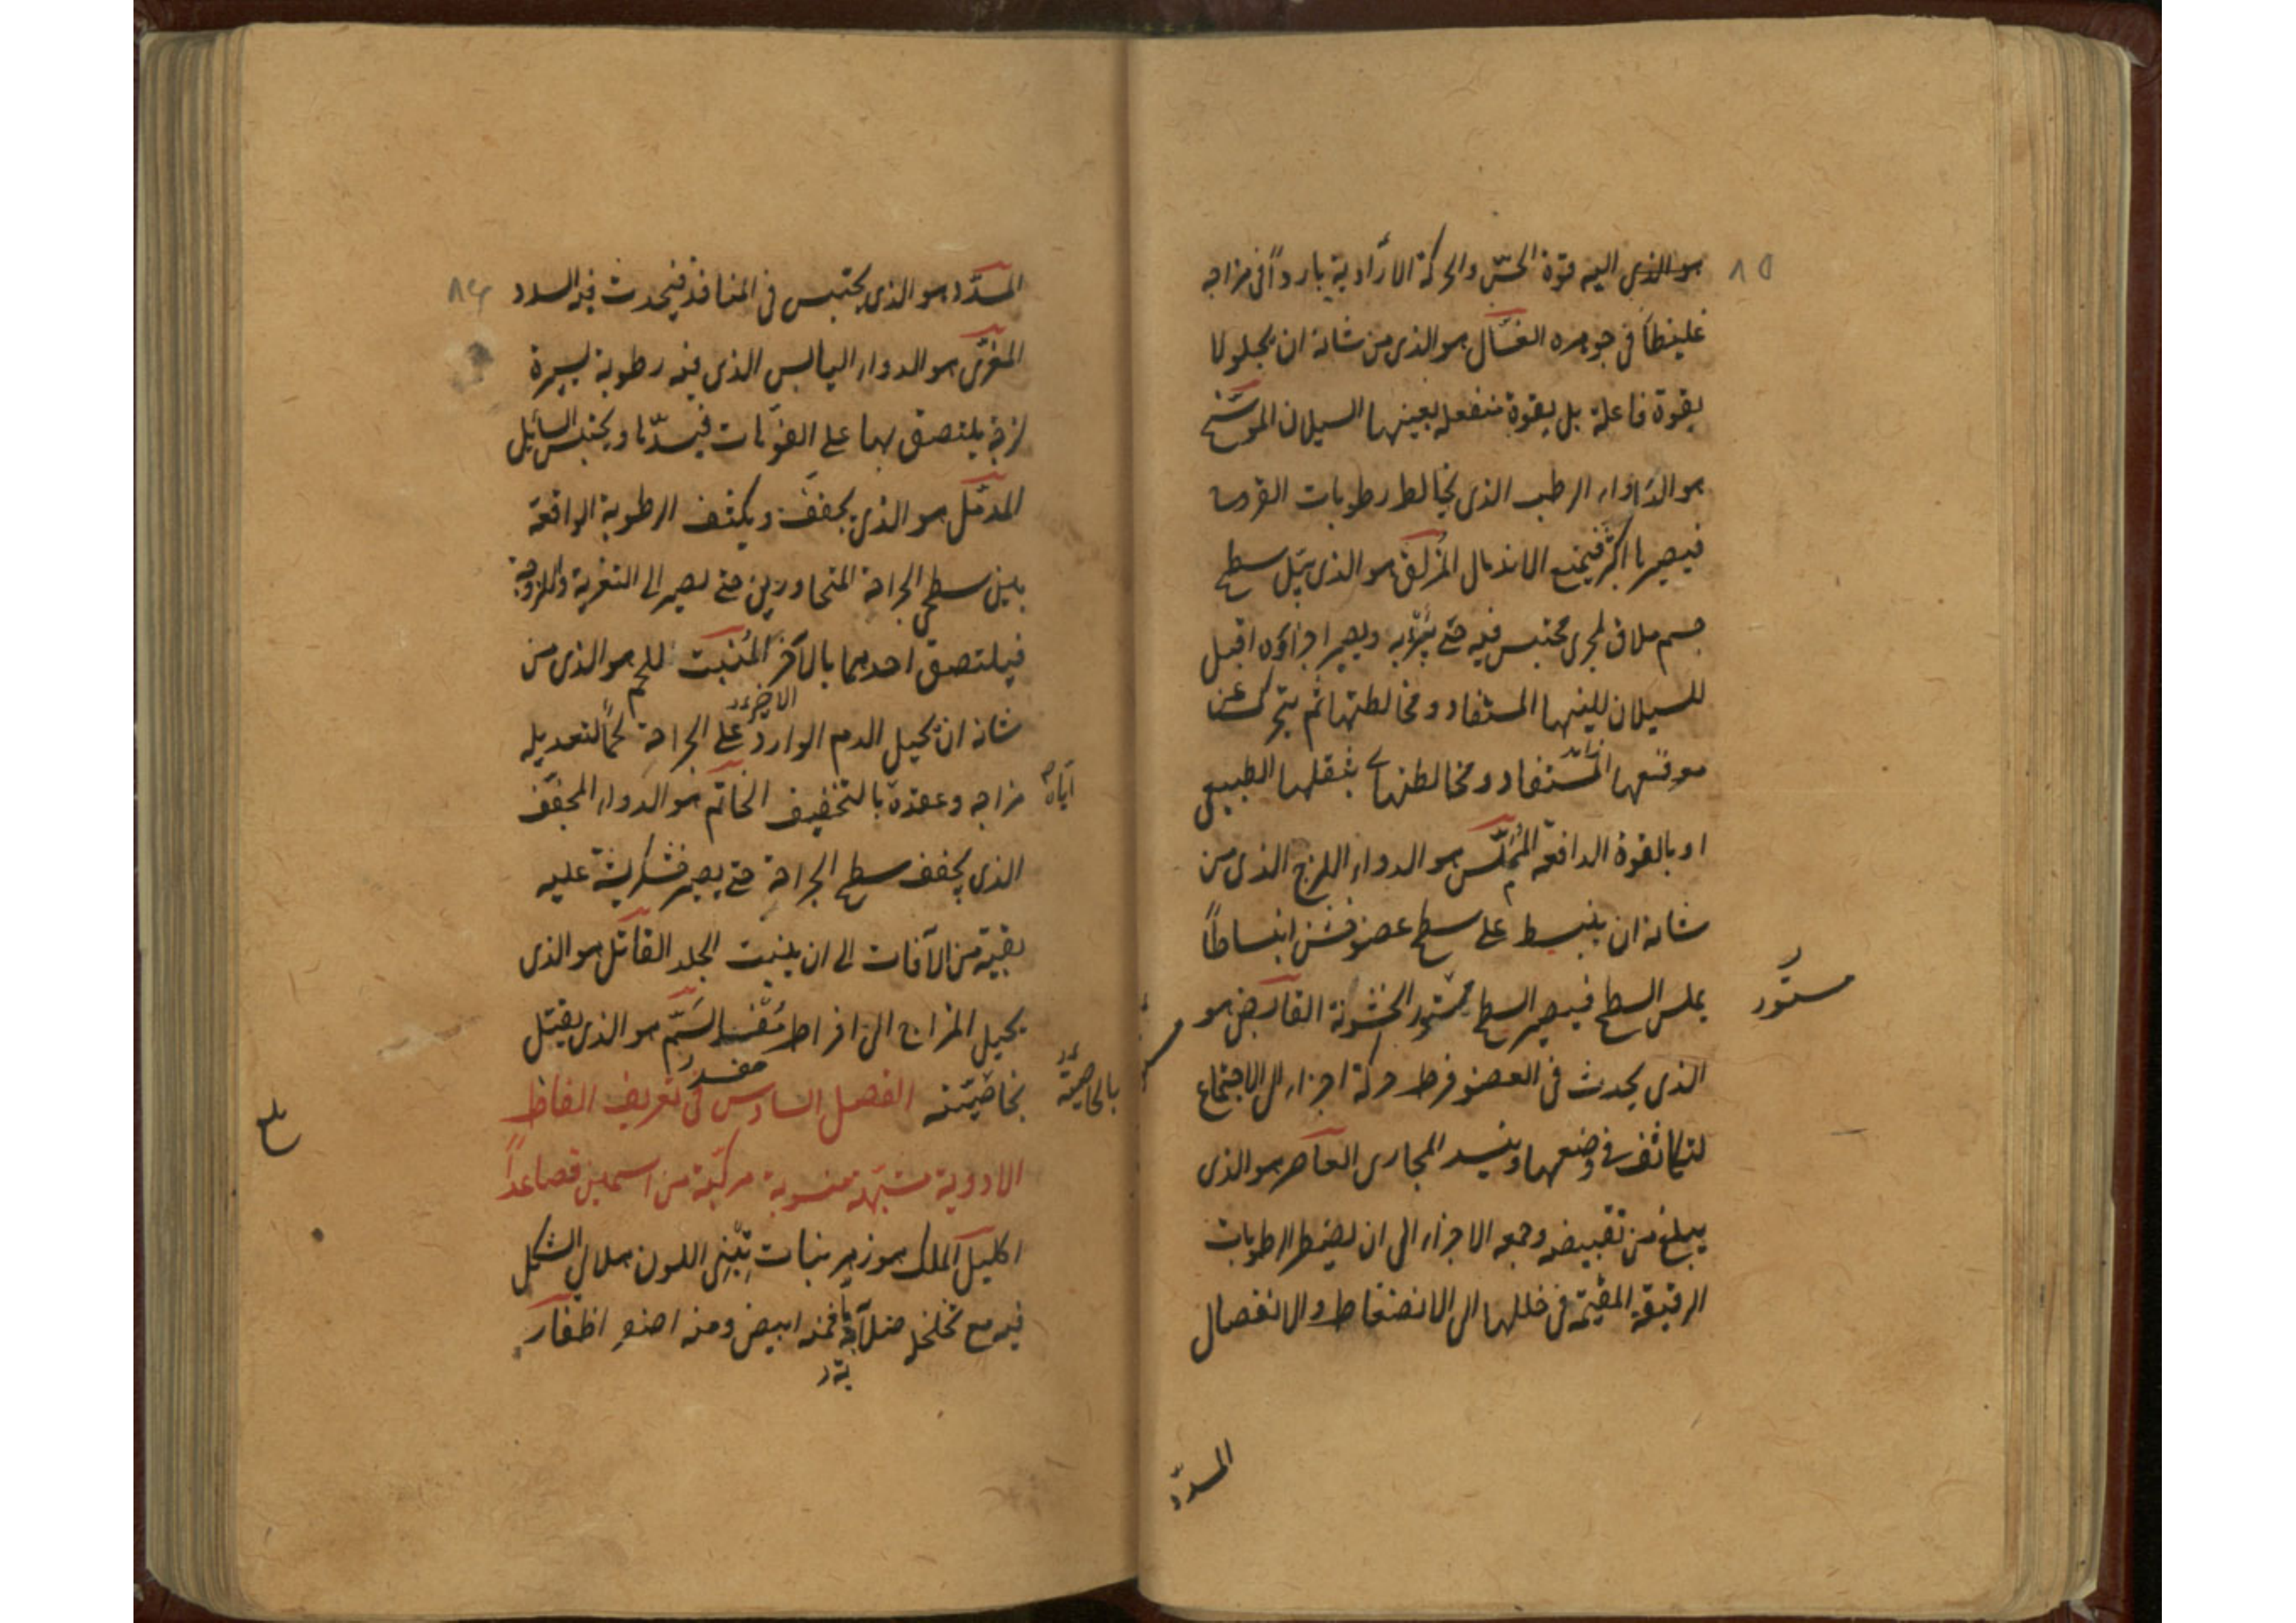 هو الذى اليه قوة الحسّ والحركة الارادية بارداً فى مزاجه
٨٥
غليظاً فى جوهره الغسّال هو الذى من شانه ان يجلو لا
بقوة فاعلة بل بقوة منفعله بعينها السيلان الموسّخ
هو الدواء الرطب الذى يخالط رطوبات القروح
فيصيرها اكثر فيمنع الاندمال المزلق هو الذى يبلّ سطح
جسم ملاق لمجرى محتبس فيه حتى يبرّئه ويصير اجزاؤه اقبل
للسيلان للينها المستفاد ومخالطتها ثم يتحرك عن
موضعها المستفاد ومخالطتها بثقلها الطبيعى
او بالقوة الدافعة المملّس هو الدواء اللزج الذى من
شانه ان ينبسط على سطح عضو خشن انبساطاً
يملس السطح فيصير السطح مستور الخشونة القابض هو
مستور
الذى يحدث فى العضو فرط حركة اجزاء الى الاجتماع
لتتكاثف فى وضعها وينسد المجارى العاصر هو الذى
يبلغ من تقبيضه وجمعه الاجزاء الى ان يضطر الرطوبات
الرقيقة المقيمة فى خللها الى الانضغاط والانفصال
المسدّد
المسدّد هو الذى يحتبس فى المنافذ فيحدث فيه السدد
٨٤
المغرّى هو الدواء اليابس الذى فيه رطوبة يسيرة
لزجة يلتصق بها على الفوّهات فيسدّها ويحتبس السائل
المدمّل هو الذى يجفف ويكثف الرطوبة الواقعة
بين سطحى الجراحة المتجاورين حتى يصير الى التغرية واللزوجة
فيلتصق احدهما بالآخر المنبت للحم هو الذى من
شانه ان يحيل الدم الوارد على الجراحة لحماً لتعديله
الاخير
مزاجه وعقده بالتجفيف الخاتم هو الدواء المجفف
اياه
الذى يجفف سطح الجراحة حتى يصير خشكريشة عليه
بقية من الآفات الى ان ينبت الجلد القاتل هو الذى
يحيل المزاج الى افراط مفسد السّمّ هو الذى يقتل
مفسد
بخاصّيته الفصل السادس فى تعريف الفاظ
بالخاصية
بلغ
الادوية مشبّهة منسوبة مركّبة من اسمين فصاعداً
اكليل الملك هو زهر نبات تبنى اللون هلالى الشكل
فيه مع تخلخل صلابة فمنه ابيض ومنه اصفر اظفار